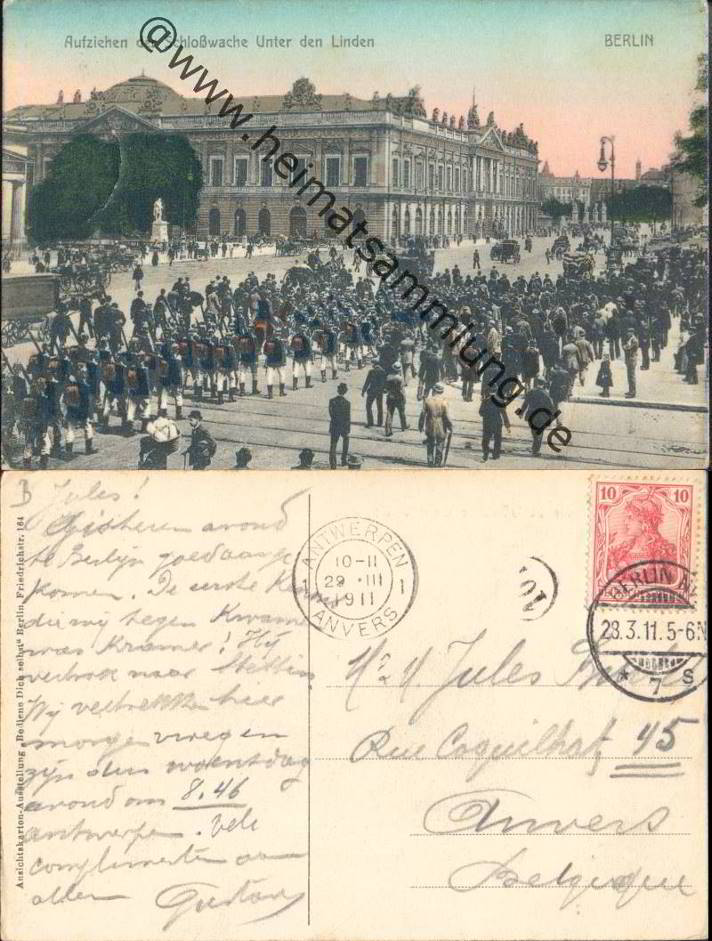 Aufziehen der Schloßwache Unter den Linden
BERLIN
@www.heimatsammlung.de
Ansichtskarten-Ausstellung „Bediene Dich selbst" Berlin, Friedrichstr. 164
B
Jules!
Gisteren avond
te Berlijn goed aange
komen. De eerste Kennis
die wij tegen kwamen
was Kramer! Hij
vertrok naar Stettin.
Wij vertrekken hier
morgen vroegen
zijn dus woensdag
avond om 8.46
antwerpen. Vele
complimenten aan
allen Gustave
ANTWERPEN
10-11
1 29 III 1
1911
ANVERS
10 10
BERLIN
28.3.11.5-6N
* 7 S
Jules
Rue Coquilhat 45
Anvers
Belgique